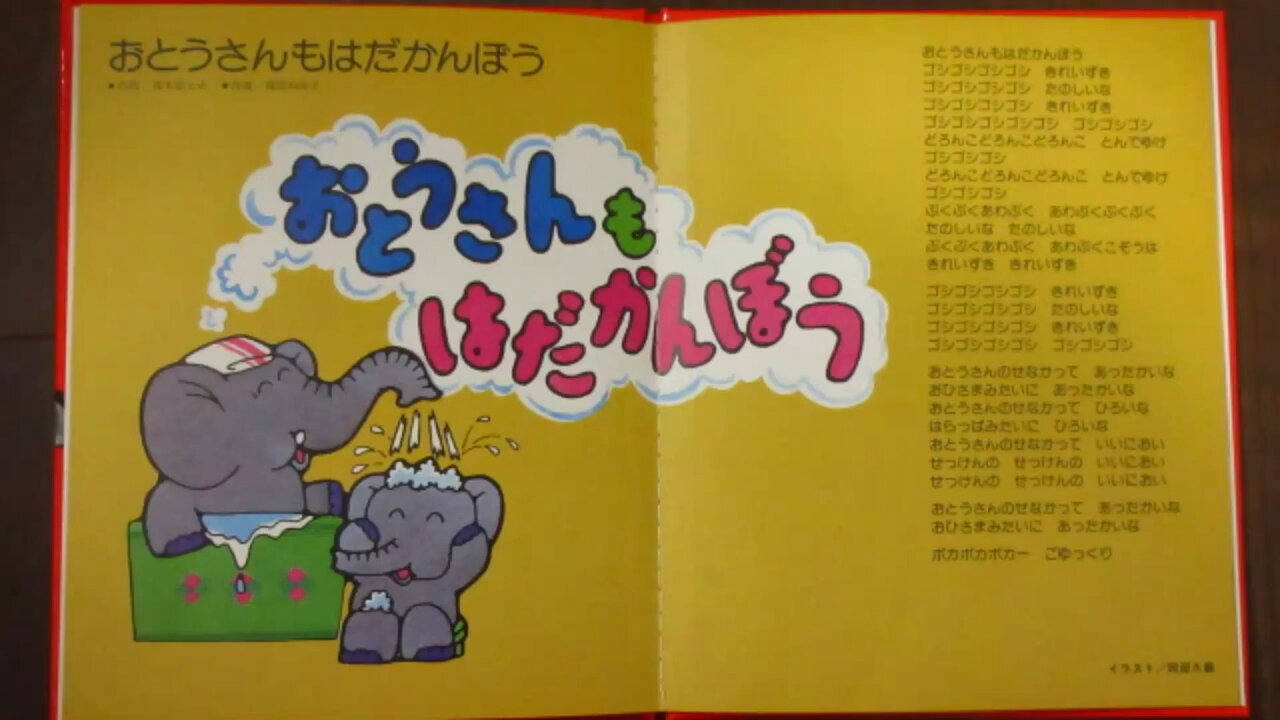 おとうさんもはだかんぼう
おとうさんも
はだかんぼう
おとうさんもはだかんぼう
ゴシゴシゴシゴシ きれいずき
ゴシゴシゴシゴシ たのしいな
ゴシゴシゴシゴシ きれいずき
ゴシゴシゴシゴシゴシ ゴシゴシゴシ
どろんこどろんこどろんこ とんでゆけ
ゴシゴシゴシ
どろんこどろんこどろんこ とんでゆけ
ゴシゴシゴシ
ぶくぶくあわぶく あわぶくぶくぶく
たのしいな たのしいな
ぶくぶくあわぶく あわぶくこぞうは
きれいずき きれいずき
ゴシゴシゴシゴシ きれいずき
ゴシゴシゴシゴシ たのしいな
ゴシゴシゴシゴシ きれいずき
ゴシゴシゴシゴシ ゴシゴシゴシ
おとうさんのせなかって あったかいな
おひさまみたいに あったかいな
おとうさんのせなかって ひろいな
はらっぱみたいに ひろいな
おとうさんのせなかって いいにおい
せっけんの せっけんの いいにおい
せっけんの せっけんの いいにおい
おとうさんのせなかって あったかいな
おひさまみたいに あったかいな
ポカポカポカー ごゆっくり
イラスト／